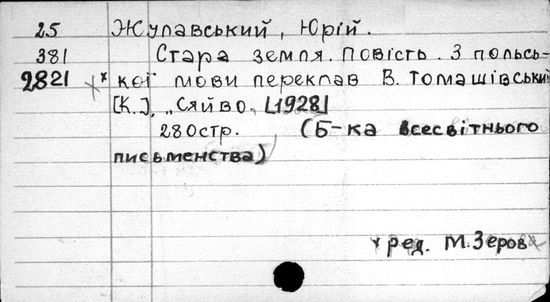 25 Жулавський, Юрій.
381 Стара земля. Повість. З польсь-
2821 ** кої мови переклав В. Томашівський
[К.], „Сяйво, [1928]
280стр. (Б-ка всесвітнього
письменства)
* ред. М.Зеров